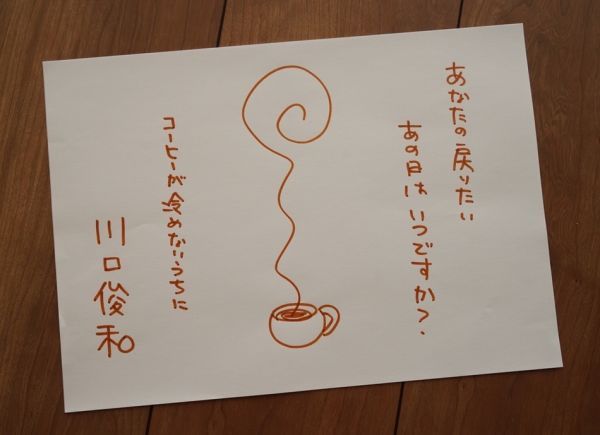 あなたの戻りたい
あの日はいつですか？
コーヒーが冷めないうちに
川口俊和